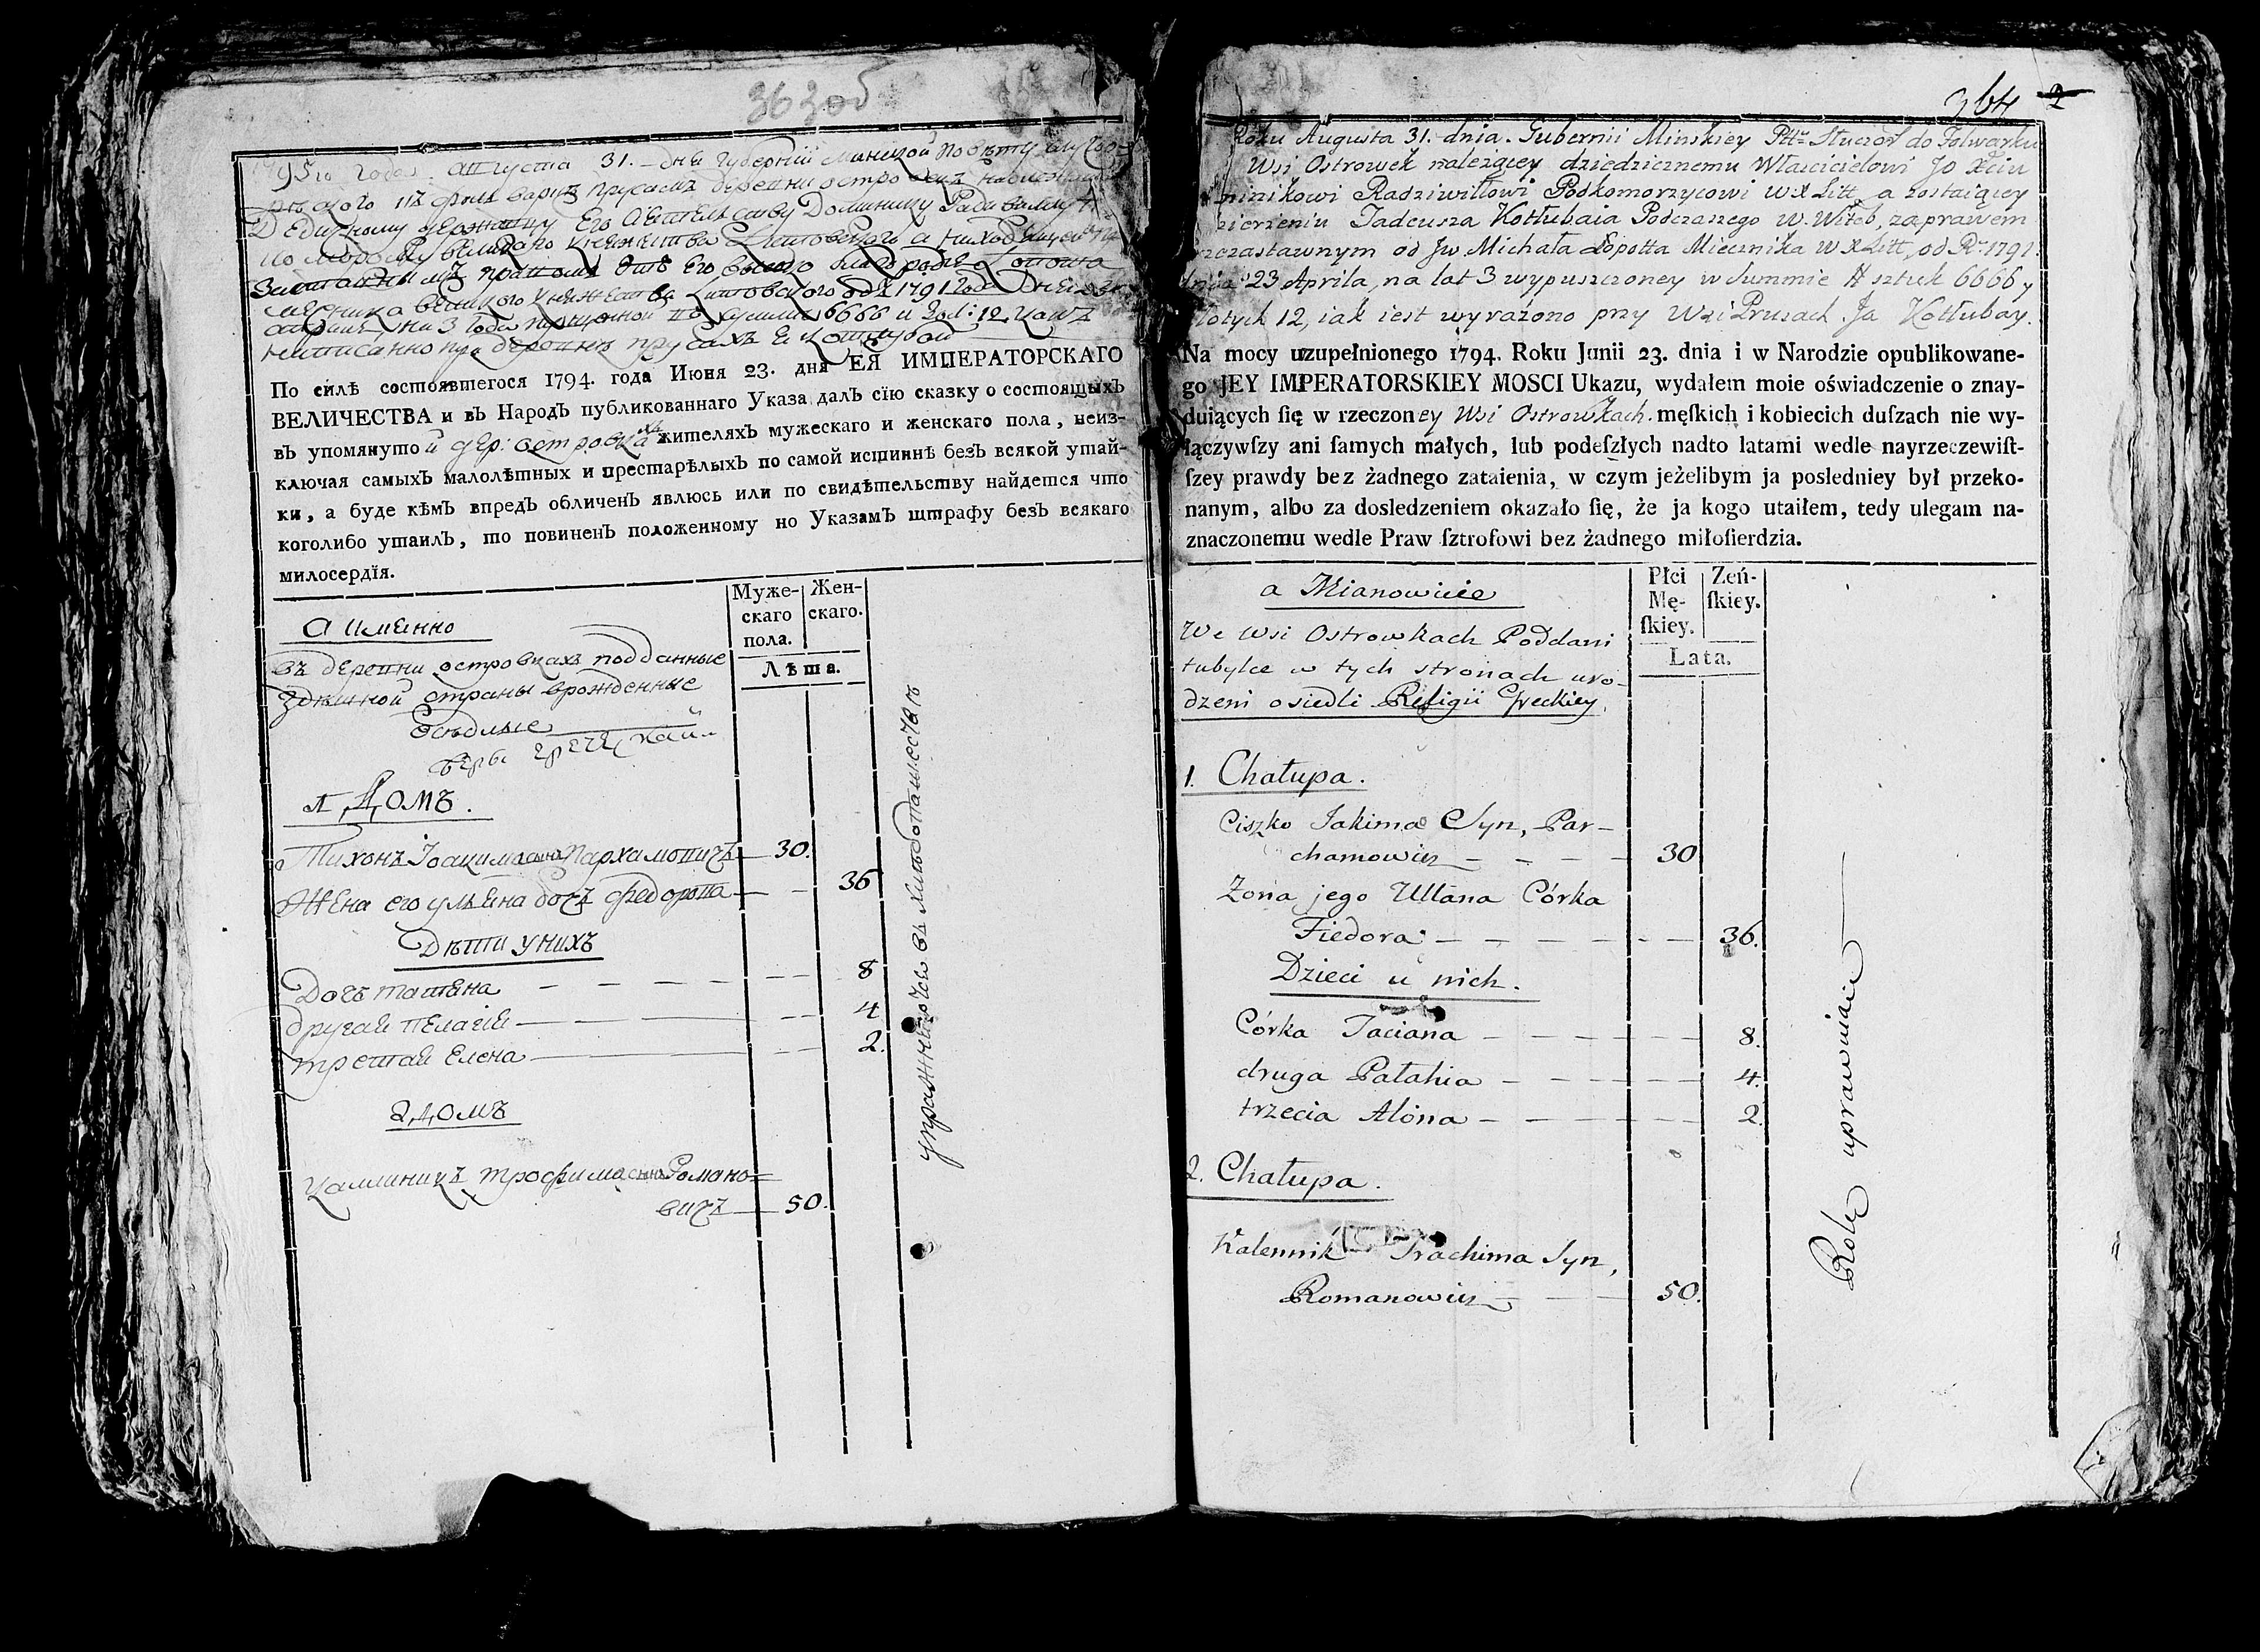 363об
95го года Августа 31. дня Губернїи Минской Повѣту Слуцкого
Дедичному
великаго Княжества Литовскаго а
1791 года
на 3 года 6666 и зол: 12
По силѣ состоявшегося 1794. года Июня 23. дня ЕЯ ИМПЕРАТОРСКАГО
ВЕЛИЧЕСТВА и въ Народъ публикованнаго Указа далъ сїю сказку о состоящыхъ
въ упомянутой дер: островкахъ жителяхъ мужескаго и женскаго пола, неиз-
ключая самыхъ малолѣтных и престарѣлыхъ по самой истиннѣ безъ всякой утай-
ки, а буде кѣмъ впредъ обличенъ явлюсь или по свидѣтельству найдется что
коголибо утаилъ, то повиненъ положенному но Указамъ штрафу безъ всякаго
милосердїя.
а имянно
Муже-
скаго
пола.
Жен-
скаго.
Лѣта.
въ деревни островкахъ подданные
здѣшной страны врожденные
осѣдлые
вѣры греческой
1 Домъ.
Тихонъ Іоакима сынъ Пархамовичъ 30.
Жена его ульяна дочъ федорова 36
Дѣти у нихъ
Дочъ татяна 8
другая пелагія 4
третая Елена 2.
2 Домъ
Каллиникъ трофима сынъ Романо=
вичъ 50.
упражняются въ хлѣбопашествѣ
364 2
Roku Augusta 31. dnia. Gubernii Minskiey Pttu Słuczor do Folwarku
Wsi Ostrowek należącey dziedzicznemu Włascicielowi Jo Xciu
minikowi Radziwiłłowi Podkomorzycowi W X Litt, a zostaiącey
dzierżeniu Tadeusza Kotłubaia Podczaszego W. Witeb, za prawem
zastawnym od Jw Michała Łopotta Miecznika W X Litt, od Ru 1791.
dnia 23 Aprila, na lat 3 wypuszczoney w Summie # sztuk 6666 y
złotych 12, iak iest wyrażono przy Wsi Prusach. Ja Kotłubay.
Na mocy uzupełnionego 1794. Roku Junii 23. dnia i w Narodzie opublikowane-
go JEY IMPERATORSKIEY MOSCI Ukazu, wydałem moie oświadczenie o znay-
duiących ſię w rzeczoney Wsi Ostrowkach. męſkich i kobiecich duſzach nie wy-
łączywſzy ani ſamych małych, lub podeſzłych nadto latami wedle nayrzeczewiſt-
ſzey prawdy bez żadnego zataienia, w czym jeżelibym ja posledniey był przeko-
nanym, albo za dosledzeniem okazało ſię, że ja kogo utaiłem, tedy ulegam na-
znaczonemu wedle Praw ſztrofowi bez żadnego miłoſierdzia.
a Mianowicie
Płci
Mę-
ſkiey.
Zeń-
ſkiey.
Lata.
We Wsi Ostrowkach Poddani
tubylce w tych stronach uro-
dzeni osiedli Religii Greckiey.
1. Chałupa.
Ciszko Jakima Syn, Par-
chamowicz 30
Zona jego Ullana Córka
Fiedora 36.
Dzieci u nich.
Córka Taciana 8.
druga Pałahia 4.
trzecia Alóna 2.
2. Chałupa.
Kalennik Trachima Syn,
Romanowicz 50.
Rolę uprawniaie